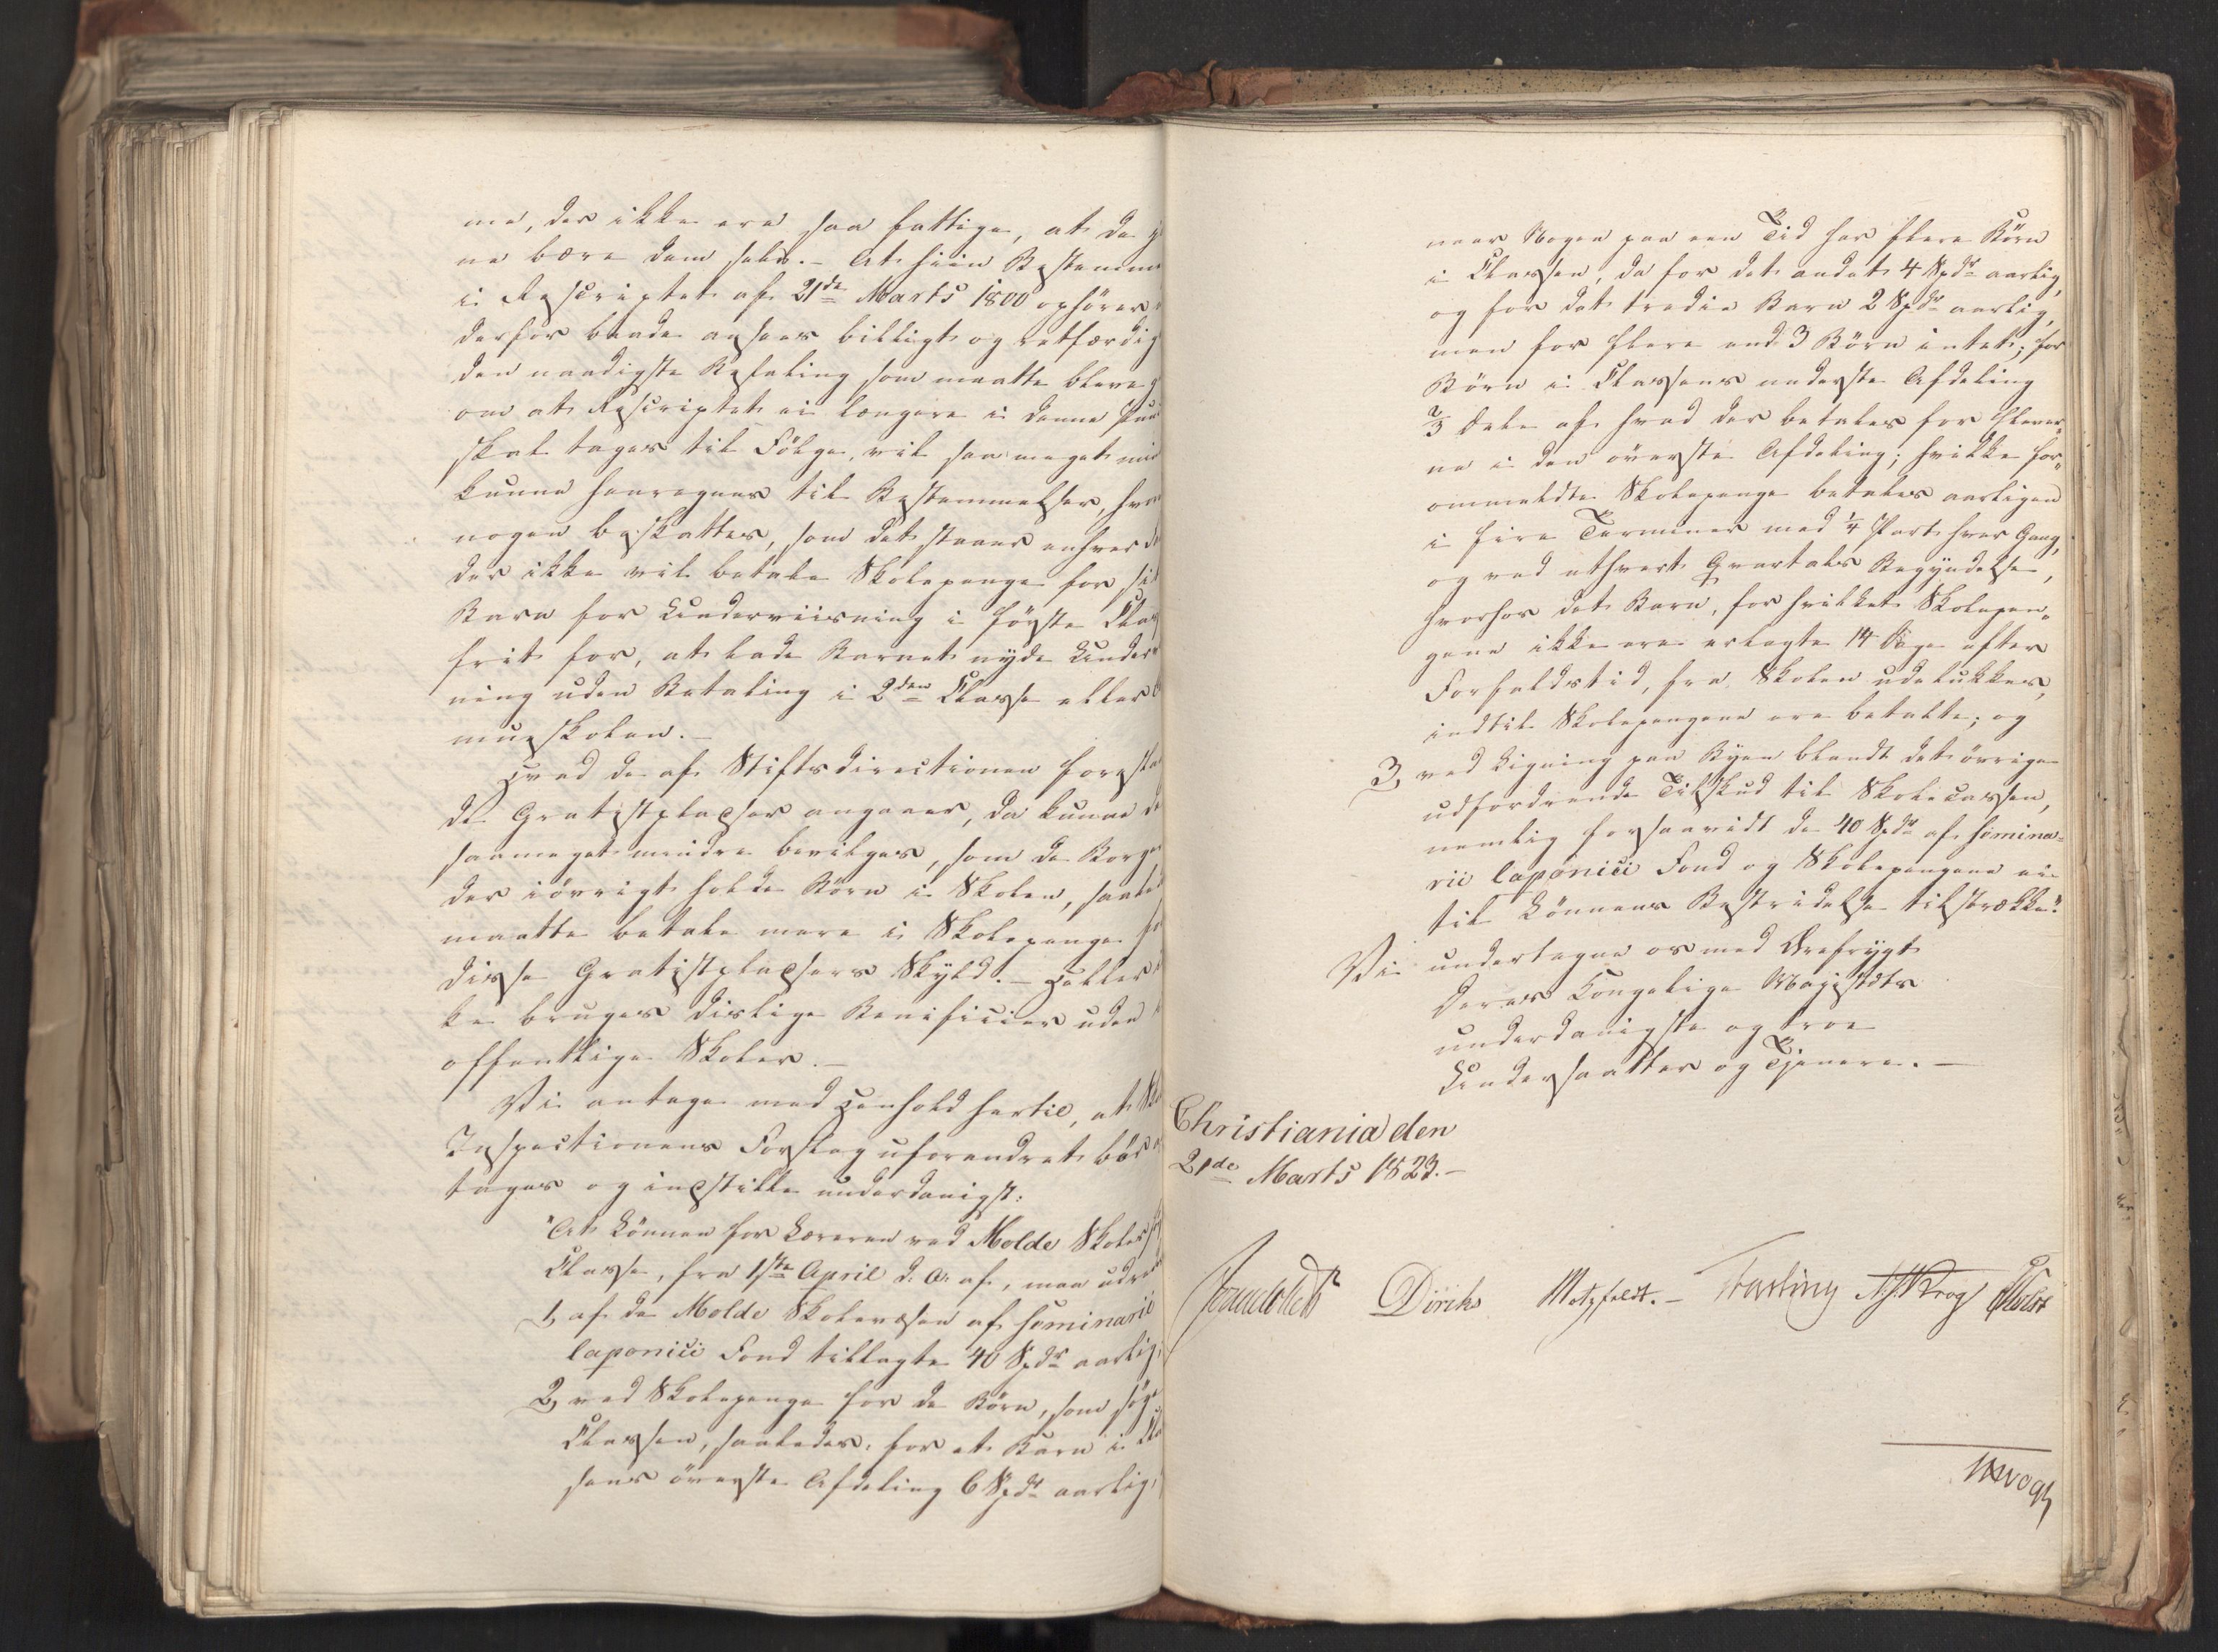 me, der ikke ere saa fattige, at de
ne bære dem selv. – At hiin Bestemm
i Rescriptet af 21de Marts 1800 ophører
derfor baade ansees billigt og retfærdig
den naadigste Befaling som maatte blive
om at Rescriptet ei længere i denne
skal tages til Følge, vil saa meget
kunne henregnes til Bestemmelser, hvor
nogen beskattes, som det staaer enhver
der ikke vil betale Skolepenge for sit
Barn for Underviisning i første Clas
frit for, at lade Barnet nyde Under
ning uden Betaling i 2den Classe eller
mueskolen. –
Hvad de af Stiftsdirectionen foresla
de Gratistpladser angaaer, da kunne
saameget mindre bevilges, som de Borge
der iøvrigt holde Børn i Skolen, saale
maatte betale mere i Skolepenge
disse Gratistpladsers Skyld. – Heller
ke bruges dislige Benificier uden
offentlige Skoler. –
Vi antage med Henhold hertil, at
Inspectionens Forslag uforandret bør
tages og indstille underdanigst:
"At Lønnen for Læreren ved Molde Skoles
Classe, fra 1ste April d. A. af, maa udre
1, af de Molde Skolevæsen af Seminarii
laponici Fond tillagte 40 Spdr aarlig,
2, ved Skolepenge for de Børn, som søge
Classen, saaledes, for et Barn i Cla
sens øverste Afdeling 6 Spdr aarlig,
naar Nogen paa een Tid har flere Børn
i Classen, da for det andet 4 Spdr aarlig,
og for det tredie Barn 2 Spdr aarlig,
men for flere end 3 Børn intet; for
Børn i Classens nederste Afdeling
2/3 Dele af hvad der betales for Elever„
ne i den øverste Afdeling; hvilke for„
ommeldte Skolepenge betales aarligen
i fire Terminer med 1/4 Part hver Gang,
og ved ethvert Qvartals Begyndelse,
hvorhos det Barn, for hvilket Skolepen„
gene ikke ere erlagte 14 Dage efter
Forfaldstid, fra Skolen udelukkes,
indtil Skolepengene ere betalte; og
3, ved Ligning paa Byen blandt det øvrige
udfordrende Tilskud til Skolecassen,
nemlig forsaavidt de 40 Spdr af Semina-
rii laponici Fond og Skolepengene ei
til Lønnens Bestridelse tilstrække."
Vi undertegne os med Ærefrygt
Deres Kongelige Majestæts
underdanigste og troe
Undersaatter og Tjenere. –
Christiania den
21de Marts 1823. –
Diriks Motzfeldt. – Fasting Krog Holst